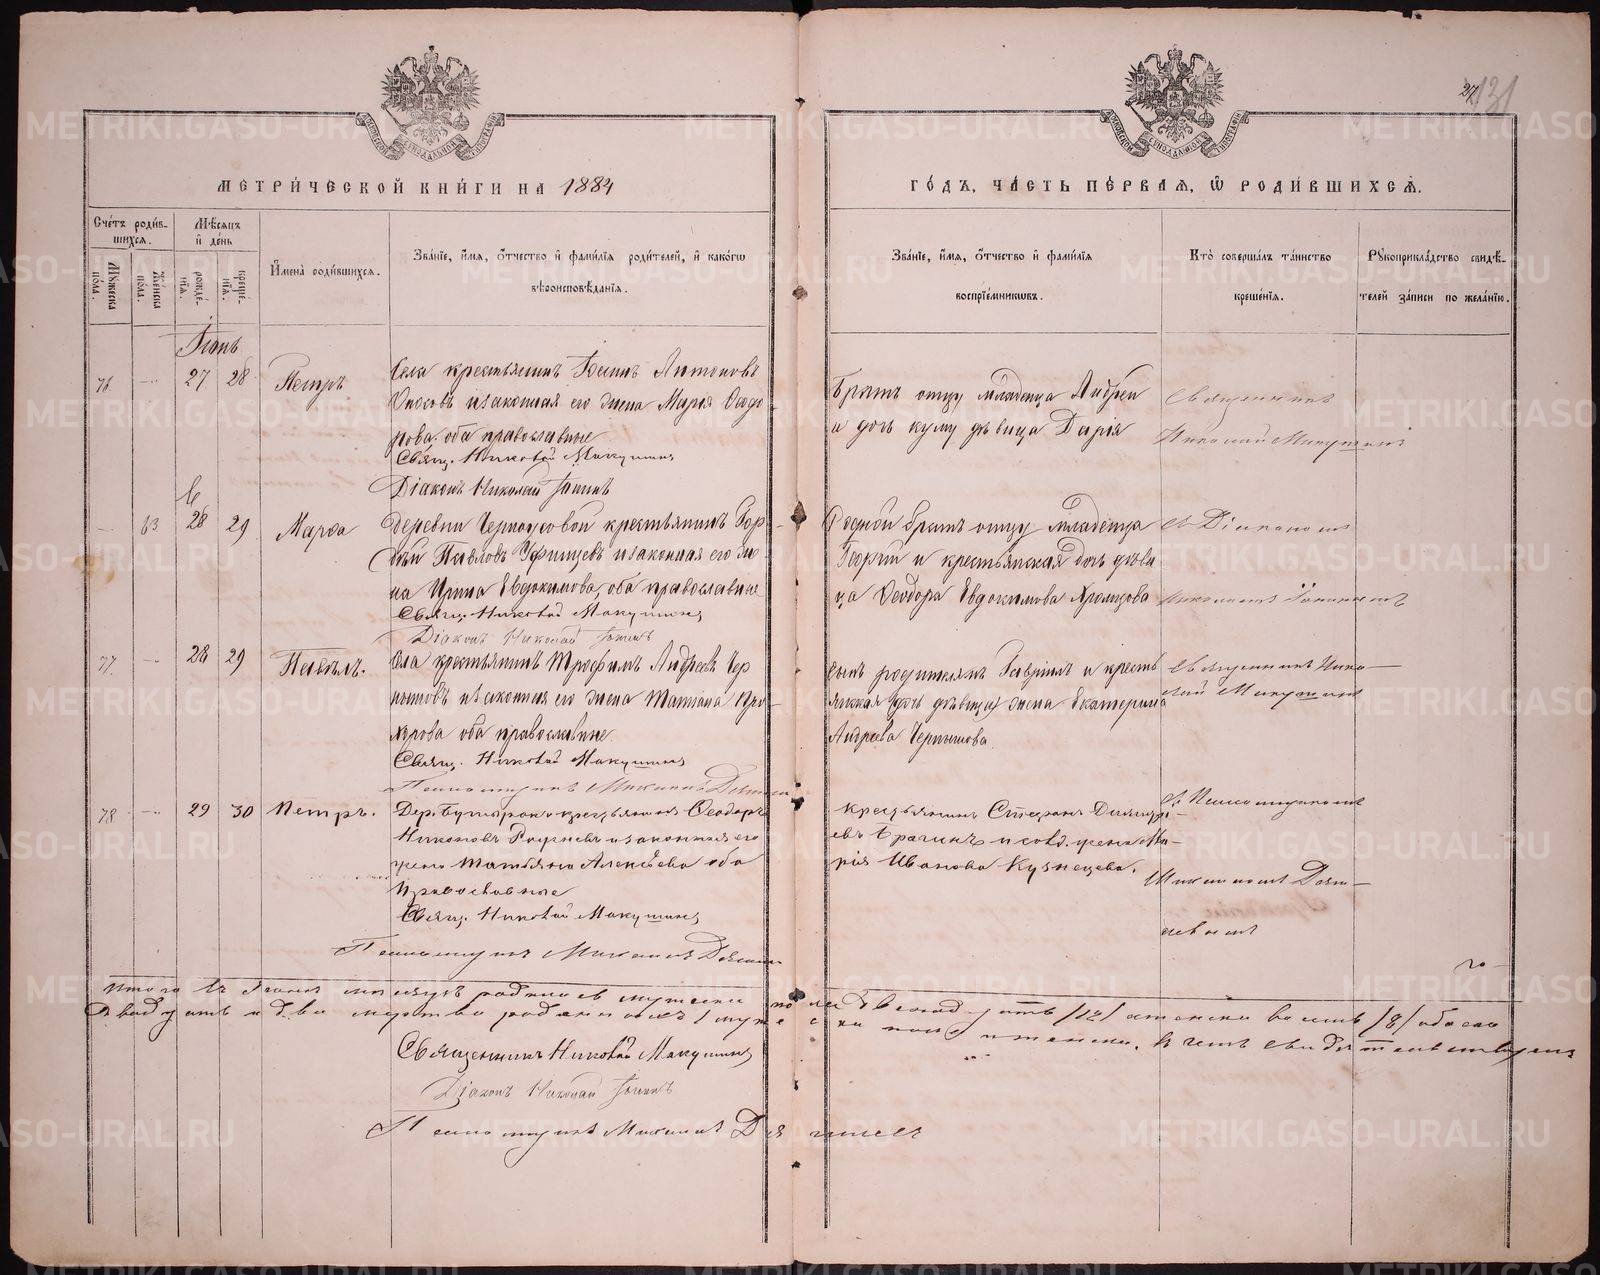 27 131
МЕТРИЧЕСКОЙ КНИГИ НА 1884
ГОДЪ, ЧАСТЬ ПЕРВАЯ, Ѿ РОДИВШИХСЯ.
Счетъ родив-
шихся.
Мѣсяцъ
и день
Мужеска
пола.
Женска
пола.
рожде-
нія.
креще-
нія.
Имена родившихся.
Званіе, имя, отчество и фамилія родителей, и какогѡ
вѣроисповѣданія.
Званіе, имя, отчество и фамилія
воспріемникѡвъ.
Кто совершалъ таинство
крещенія.
Рукоприкладство свидѣ-
телей записи по желанію.
Іюнь
76 27 28 Петръ
Села крестьянинъ Антоновъ
и законная его жена Марія Ѳеодо
рова оба православные
Свящ. Николай Макушинъ
Діаконъ Николай
Братъ отцу младенца Андрей
и дочь куму дѣвица Дарія
Священникъ
Николай Макушинъ
63 28 29 Марѳа
Деревни крестьянинъ
Павловъ и законная его же
на Ирина Евдокимова, оба православные
Свящ. Николай Макушинъ
Діаконъ Николай
Родной братъ отцу младенца
Георгій и крестьянская дочь дѣви
ца Ѳеодора Евдокимова
съ Діакономъ
Николаемъ
77 28 29 Павелъ.
Села крестьянинъ Трофимъ Андреевъ Чер
нышовъ и законная его жена Татіана
оба православные
Свящ. Николай Макушинъ
Псаломщикъ Михаилъ
Сынъ родителямъ Гавріилъ и кресть
янская (дочь дѣвица) жена Екатерина
Андреева Чернышова
Священникъ Нико-
лай Макушинъ
78 29 30 Петръ.
Дер. крестьянинъ Ѳеодоръ
Никоновъ и законная его
жена Татьяна Алексѣева оба
Православные
Свящ. Николай Макушинъ
Псаломщикъ Михаилъ
Крестьянинъ Стефанъ
и жена Ма-
рія Иванова Кузнецова.
съ Псаломщикомъ
Михаиломъ
Итого въ Іюнѣ мѣсяцѣ родилось мужеска пола двенадцать /12/ а женска восемь /8/ обоего
Двадцать и два мертворожденныхъ 1 мужеска пола женска, въ чемъ свидѣтельствуемъ
Священникъ Николай Макушинъ
Діаконъ Николай
Псаломщикъ Михаилъ
METRIKI.GASO-URAL.RU